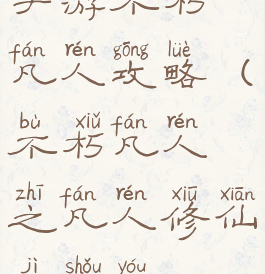 手游不朽
fán rén gōng lüè
凡人攻略（
bù xiǔ fán rén
不朽凡人
zhī fán rén xiū xiān
之凡人修仙
jì shǒu yóu